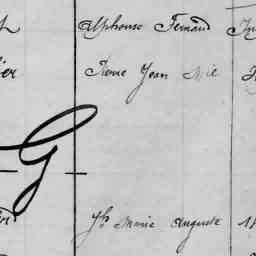 Alphonse Fernand
Pierre Jean Mie
G
Jh Marie Auguste